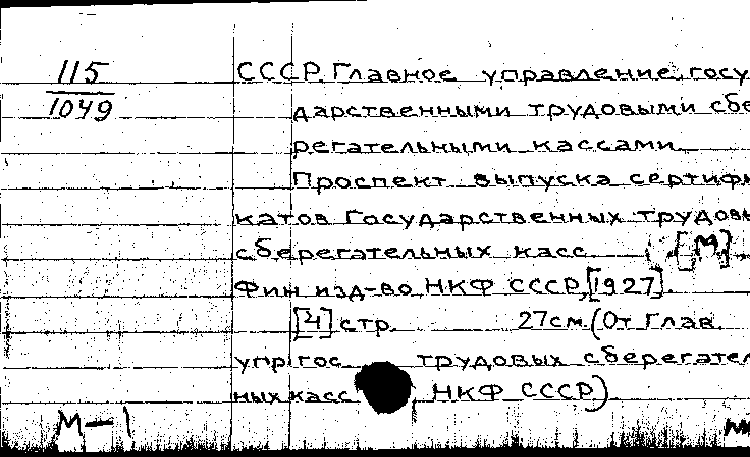 115
1049
СССР. Главное управление госу
дарственными трудовыми сбе
регательными кассами
Проспект выпуска сертифи
катов Государственных трудовы
сберегательных касс. [М],
Фин. изд-во НКФ СССР, [1927].
[4] стр. 27см. (От Глав.
упр гос. трудовых сберегатель
ных касс НКФ СССР).
М-1